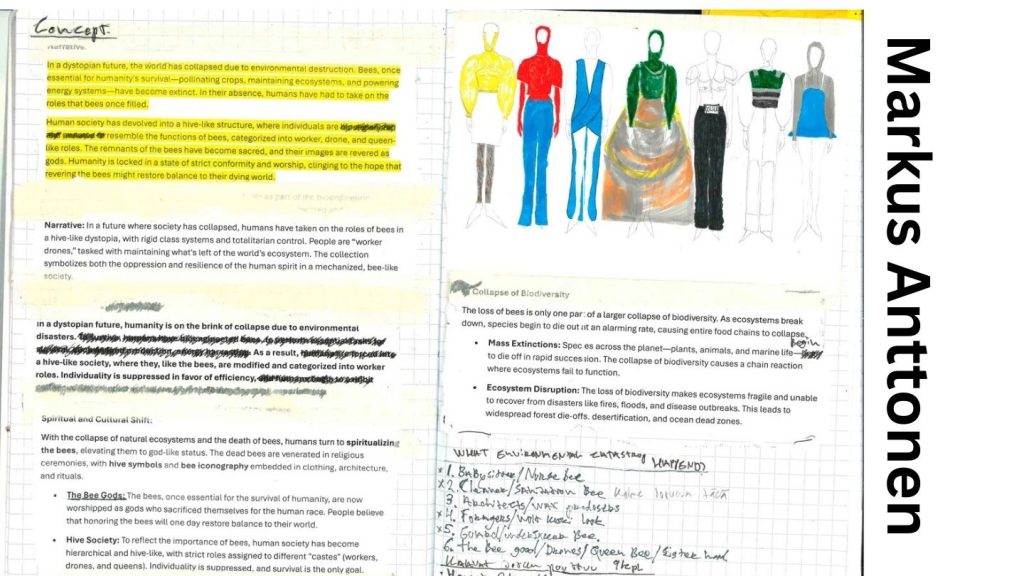 Concept.
Narrative.
In a dystopian future, the world has collapsed due to environmental destruction. Bees, once
essential for humanity's survival—pollinating crops, maintaining ecosystems, and powering
energy systems—have become extinct. In their absence, humans have had to take on the
roles that bees once filled.
Human society has devolved into a hive-like structure, where individuals are
resemble the functions of bees, categorized into worker, drone, and queen-
like roles. The remnants of the bees have become sacred, and their images are revered as
gods. Humanity is locked in a state of strict conformity and worship, clinging to the hope that
revering the bees might restore balance to their dying world.
as part of the bioengineering
Narrative: In a future where society has collapsed, humans have taken on the roles of bees in
a hive-like dystopia, with rigid class systems and totalitarian control. People are "worker
drones," tasked with maintaining what's left of the world's ecosystem. The collection
symbolizes both the oppression and resilience of the human spirit in a mechanized, bee-like
society.
In a dystopian future, humanity is on the brink of collapse due to environmental
disasters.
As a result,
a hive-like society, where they, like the bees, are modified and categorized into worker
roles. Individuality is suppressed in favor of efficiency,
Spiritual and Cultural Shift:
With the collapse of natural ecosystems and the death of bees, humans turn to spiritualizing
the bees, elevating them to god-like status. The dead bees are venerated in religious
ceremonies, with hive symbols and bee iconography embedded in clothing, architecture,
and rituals.
• The Bee Gods: The bees, once essential for the survival of humanity, are now
worshipped as gods who sacrificed themselves for the human race. People believe
that honoring the bees will one day restore balance to their world.
• Hive Society: To reflect the importance of bees, human society has become
hierarchical and hive-like, with strict roles assigned to different "castes" (workers,
drones, and queens). Individuality is suppressed, and survival is the only goal.
Collapse of Biodiversity
The loss of bees is only one part of a larger collapse of biodiversity. As ecosystems break
down, species begin to die out at an alarming rate, causing entire food chains to collapse.
Begin
• Mass Extinctions: Species across the planet—plants, animals, and marine life—
to die off in rapid succession. The collapse of biodiversity causes a chain reaction
where ecosystems fail to function.
• Ecosystem Disruption: The loss of biodiversity makes ecosystems fragile and unable
to recover from disasters like fires, floods, and disease outbreaks. This leads to
widespread forest die-offs, desertification, and ocean dead zones.
WHAT ENVIRONMENTAL CATASTROPHY HAPPEND?
x 1. Babysitter/Nurse bee
x2. Cleaner/Sanitation Bee
3. Architects/wax producers
x4. Foragers/
x5. Guard/undertaker Bee.
6. The Bee good/Drones/Queen Bee/
Markus Anttonen